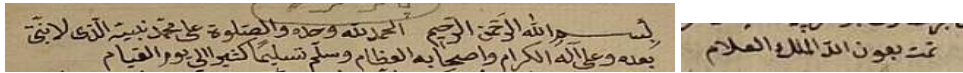 بسم الله الرحمن الرحيم الحمد لله وحده والصلوة على محمد نبيه الذى لا نبى
بعده وعلى آله الكرام واصحابه العظام وسلم تسليما كثيرا الى يوم القيام
تمت بعون الله الملك العلام